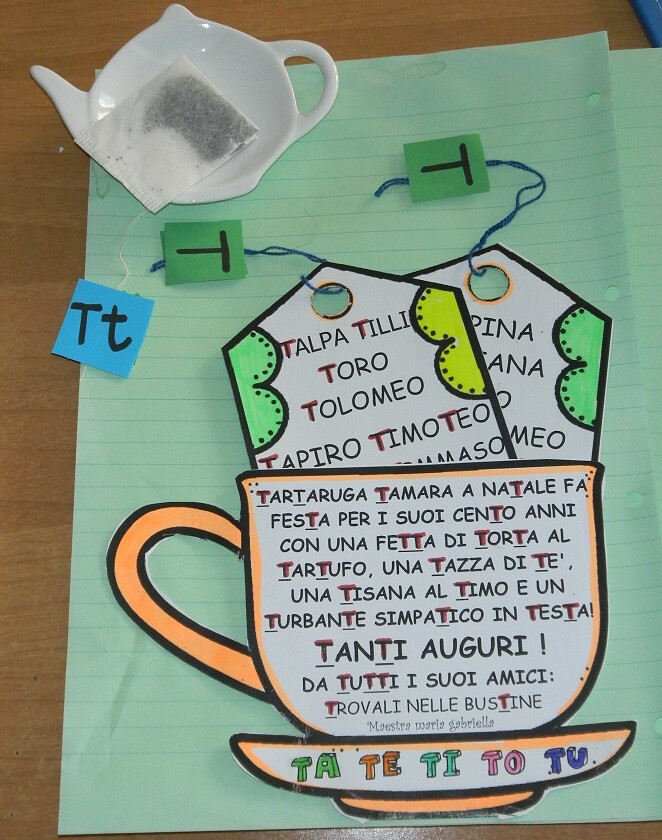 T
T
Tt
TALPA TILLI
TORO
TOLOMEO
TAPIRO TIMOTEO
PINA
ANA
O
MEO
TARTARUGA TAMARA A NATALE FA
FESTA PER I SUOI CENTO ANNI
CON UNA FETTA DI TORTA AL
TARTUFO, UNA TAZZA DI TE',
UNA TISANA AL TIMO E UN
TURBANTE SIMPATICO IN TESTA!
TANTI AUGURI !
DA TUTTI I SUOI AMICI:
TROVALI NELLE BUSTINE
Maestra maria gabriella
TA TE TI TO TU